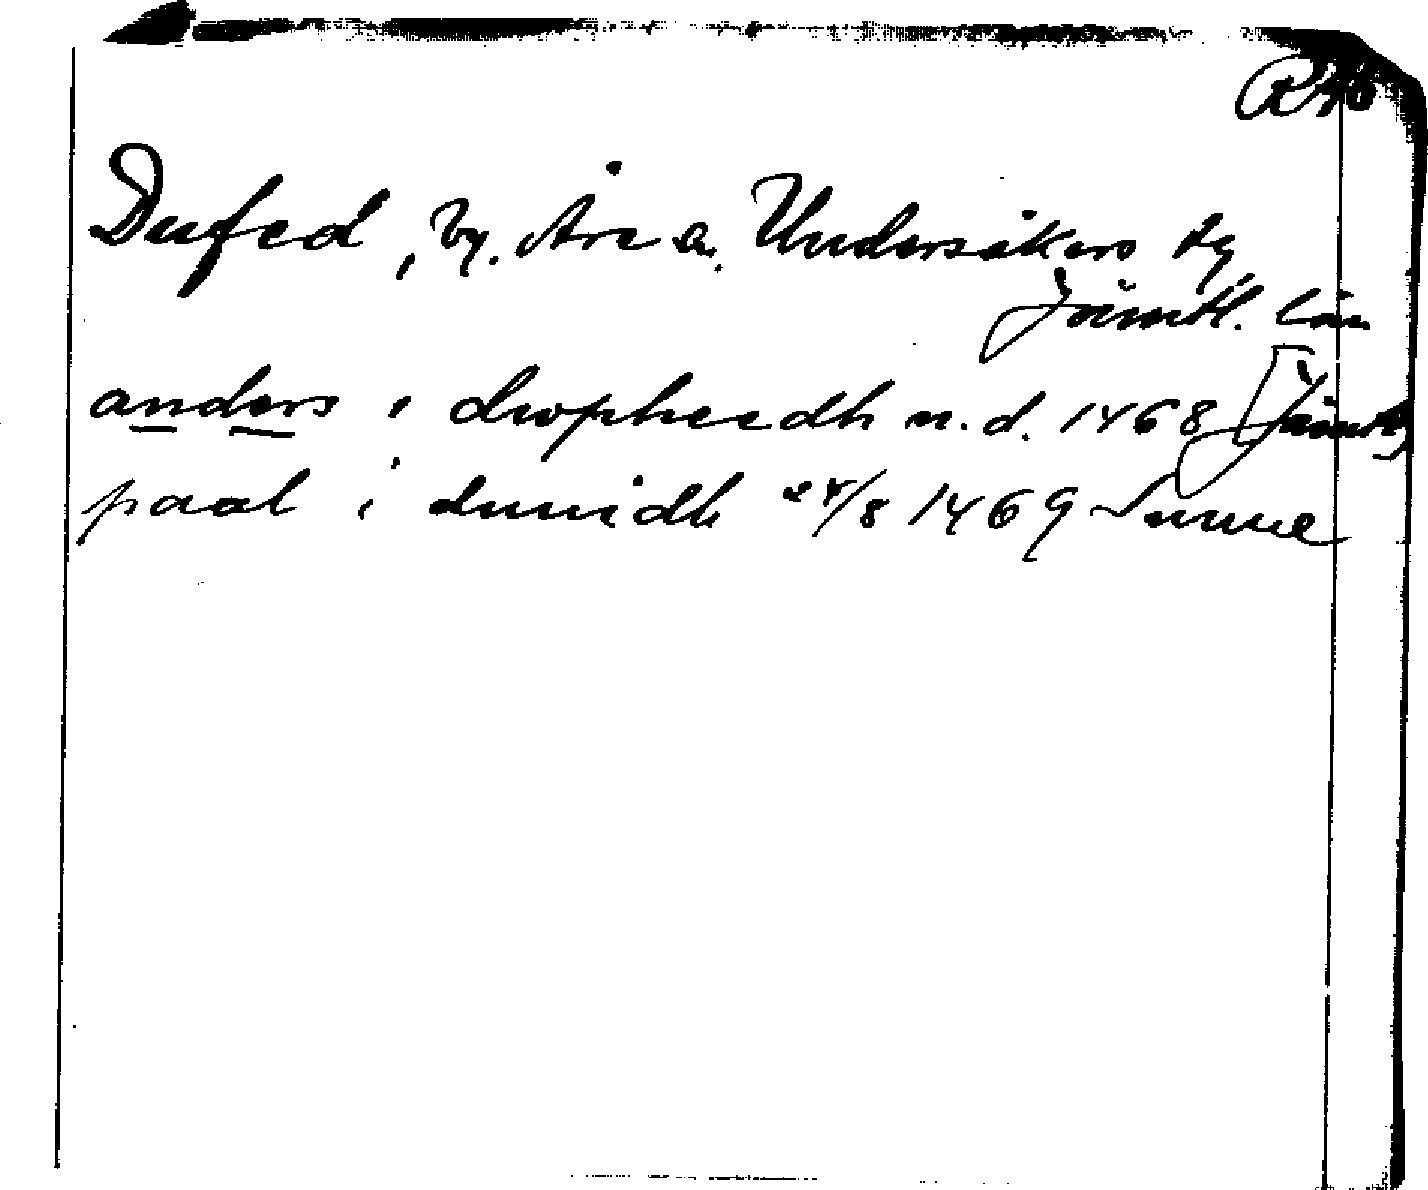 RAÖ
Dufed, by. Åre s. Undersåkers tg,
Jämtl. län
anders i dwpheedh u.d. 1468 [Jämtl]
paal i duuidh 24/8 1469 Sunne